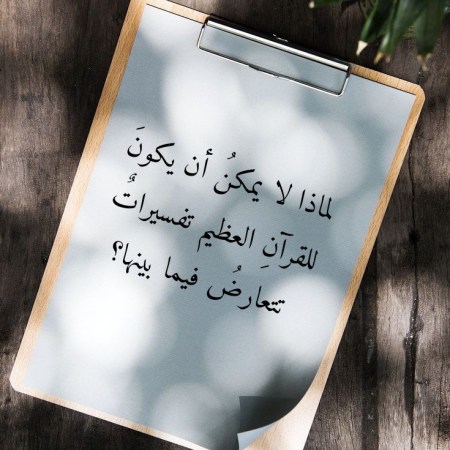 لماذا لا يمكنُ أن يكونَ
للقرآنِ العظيم تفسيراتٌ
تتعارضُ فيما بينها؟